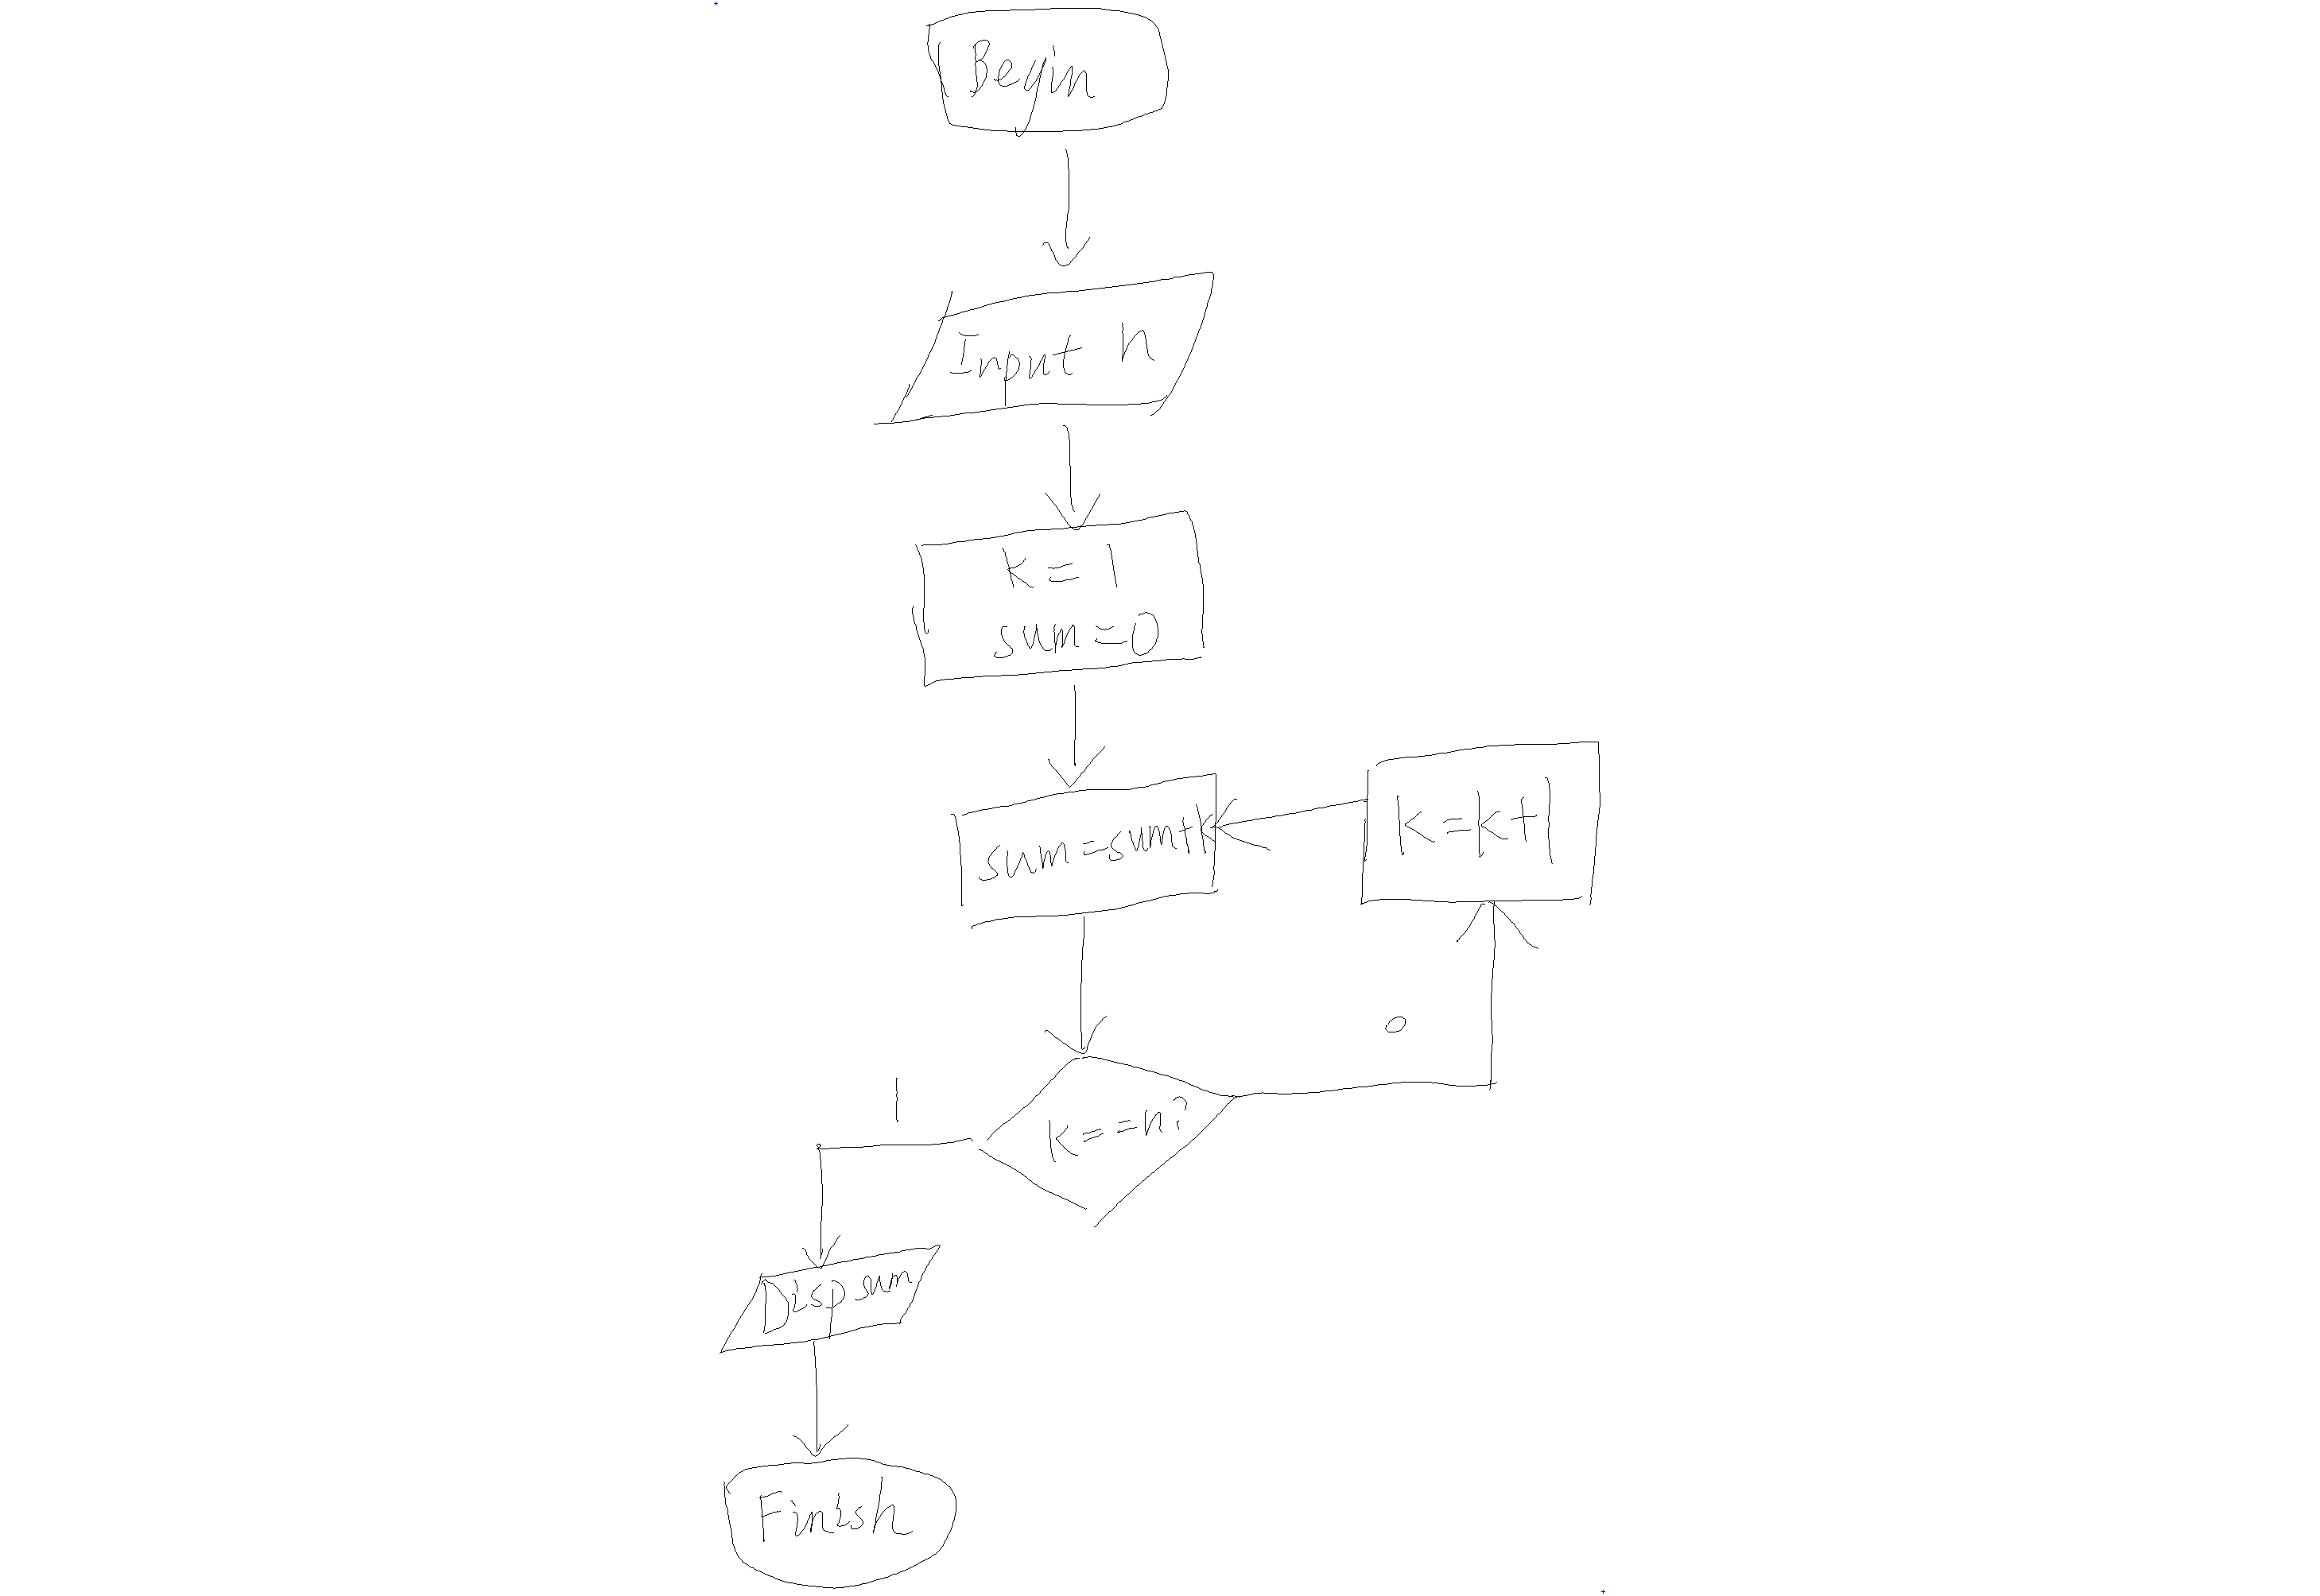 Begin
Input n
k=1
sum=0
sum=sum+k
k=k+1
0
1
k==n?
Disp sum
Finish